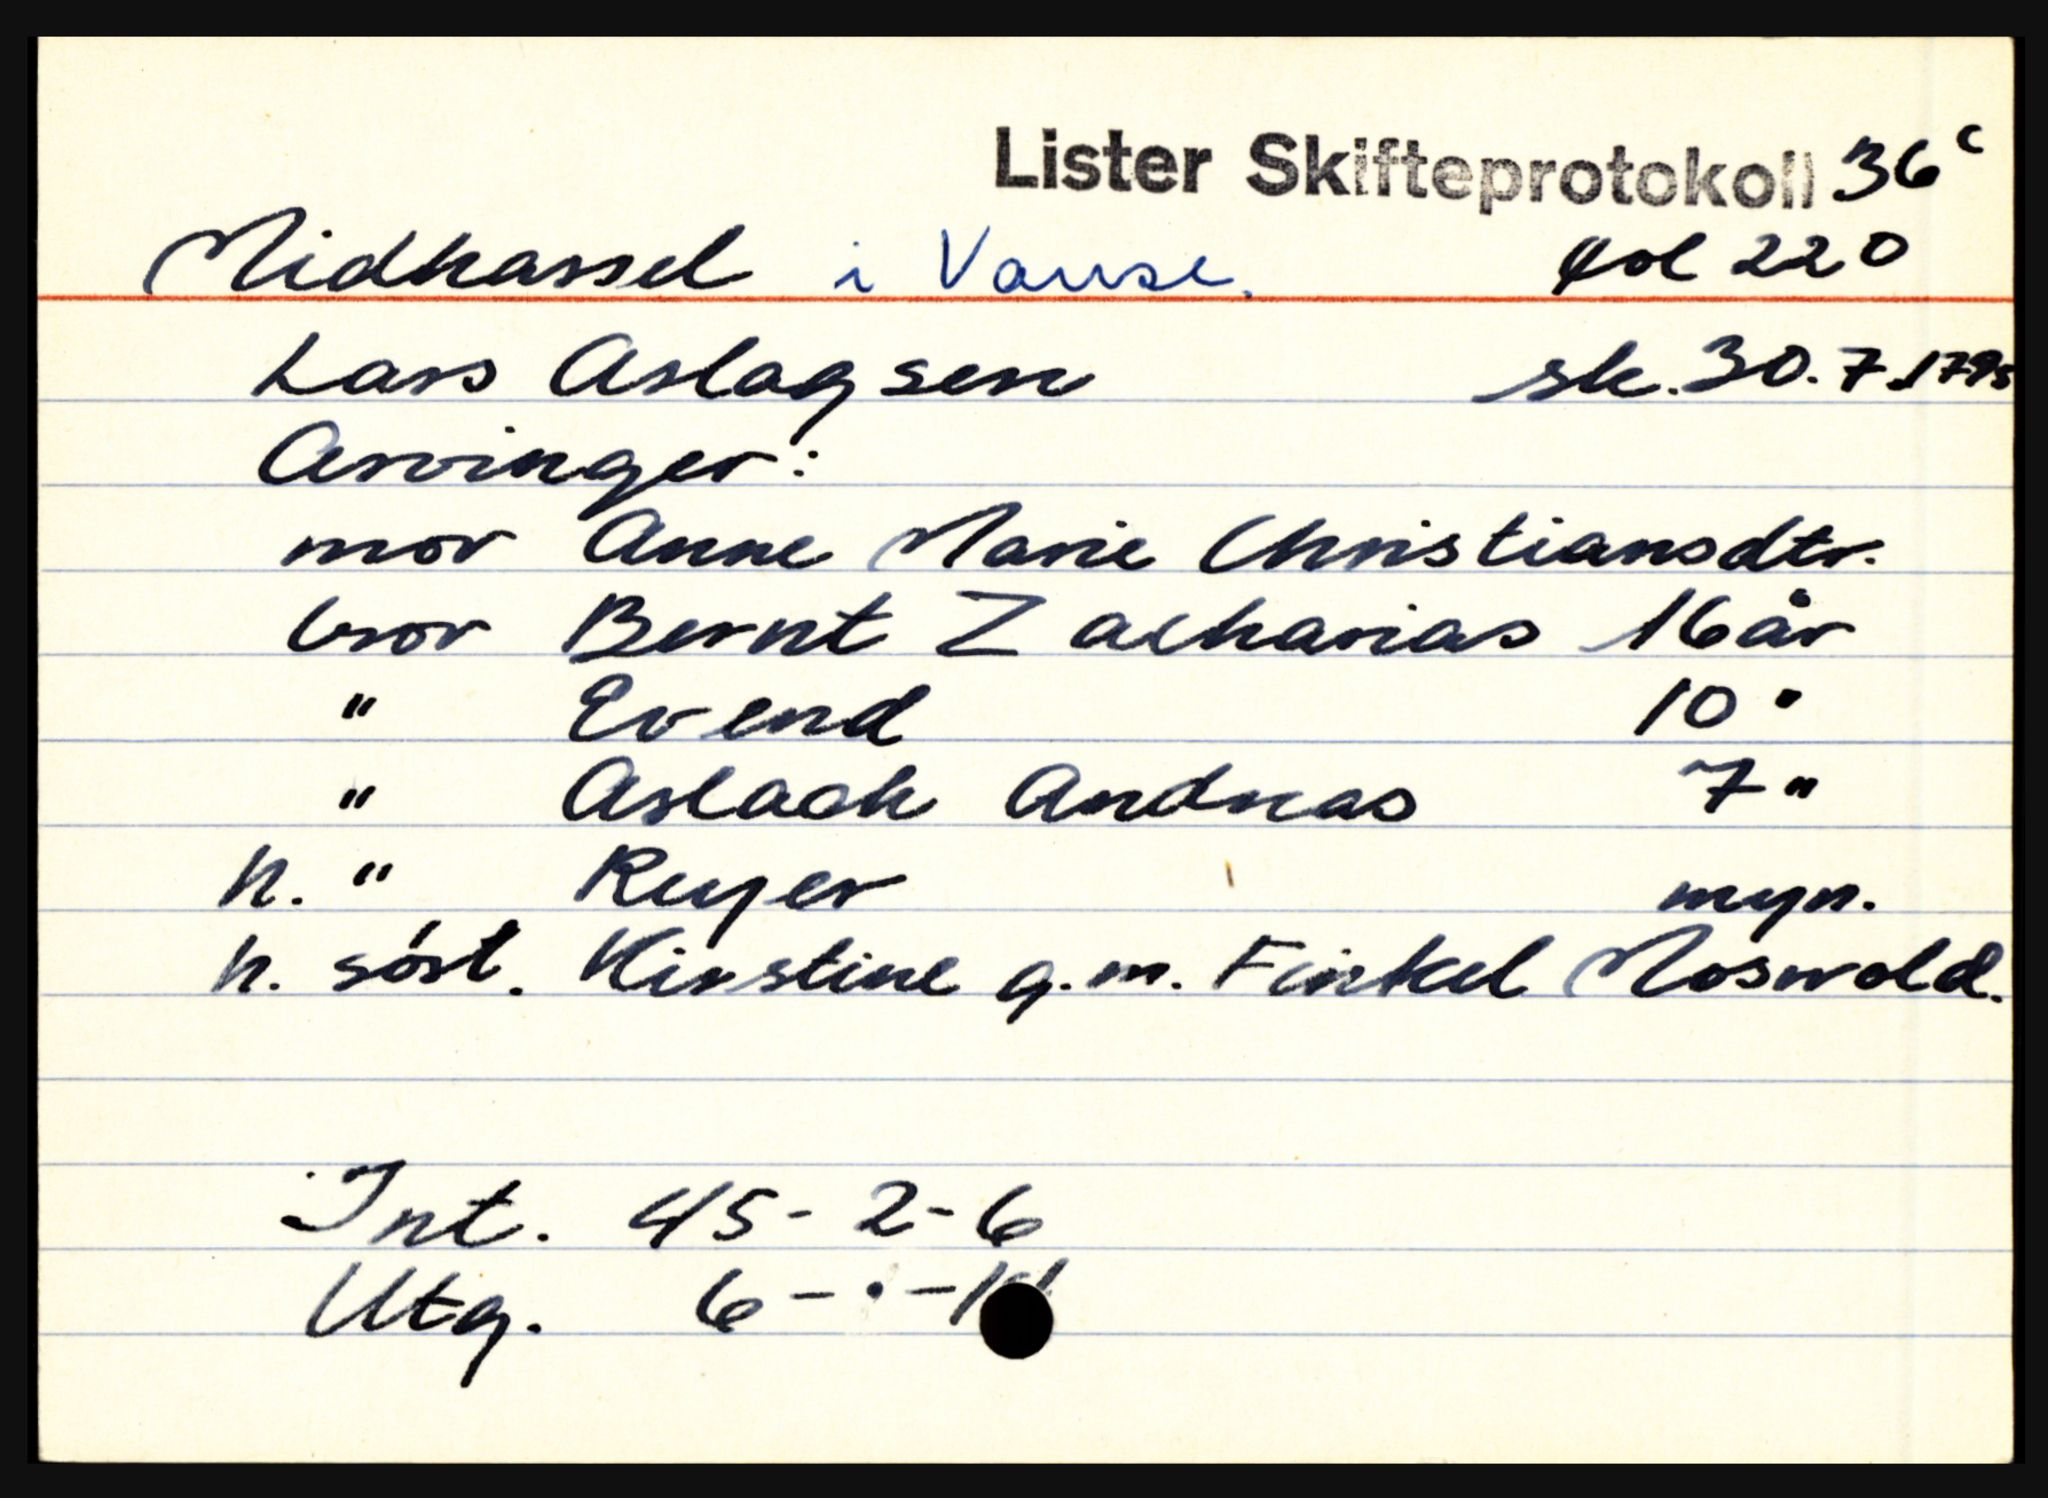 Lister Skifteprotokoll 36c
Midhassel i Vanse. fol 220
Lars Aslagsen sk. 30.7.1795
Arvinger:
mor Anne Marie Christiansdtr.
bror Bernt Zacharias 16 år
" Evend 10 "
" Aslach Andreas 7 "
h. " Reyer myn.
h. søst. Kirstine g.m. Finkel Mosvold.
Int. 45-2-6
Utg. 6-·-